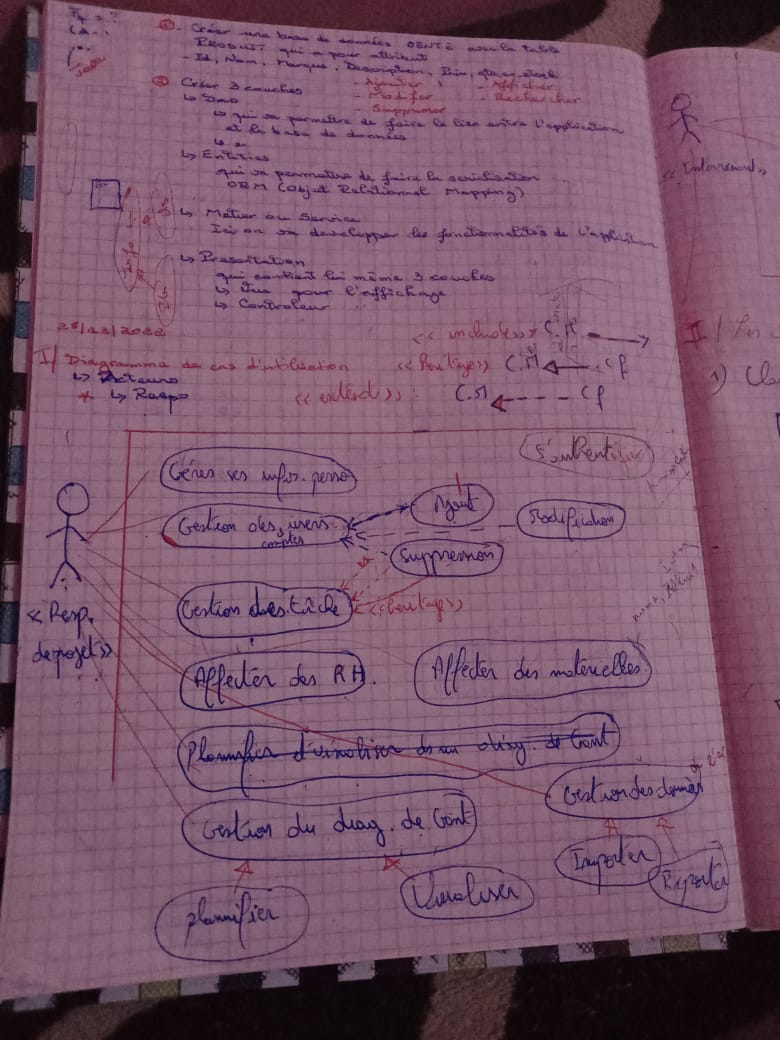 ① - Créer une base de données avec la table
PRODUIT qui a pour attribut
- Id, Nom, Marque, Description, Prix, qte_en_stock
② Créer 3 couches - Ajouter - Afficher
- Modifier - Rechercher
- Supprimer
↳ Dao
↳ qui va permettre de faire le lien entre l'application
et la base de données
↳ Entities
qui va permettre de faire la serialisation
ORM (Objet Relational Mapping)
↳ Metier ou Service
Ici on va developper les fonctionnalités de l'application
↳ Presentation
qui contient lui même 3 couches
↳ Vue pour l'affichage
↳ Controleur
28/12/2022
<< include >>
I/ Diagramme de cas d'utilisation
↳ Acteurs
* ↳ Respo
<< extend >> :
C.M
C.M
cp
cp
S'authentifier
Gérer ses infor. perso
Gestion des users
comptes
Ajout
Modification
Suppression
Gestion des tâche
<< Resp.
de projet >>
Affecter des RH.
Affecter des materielles
Gestion des données
Gestion du diag. de Gant
Importer
Exporter
Visualiser
plannifier
<< Intervenant >>
II/
1)